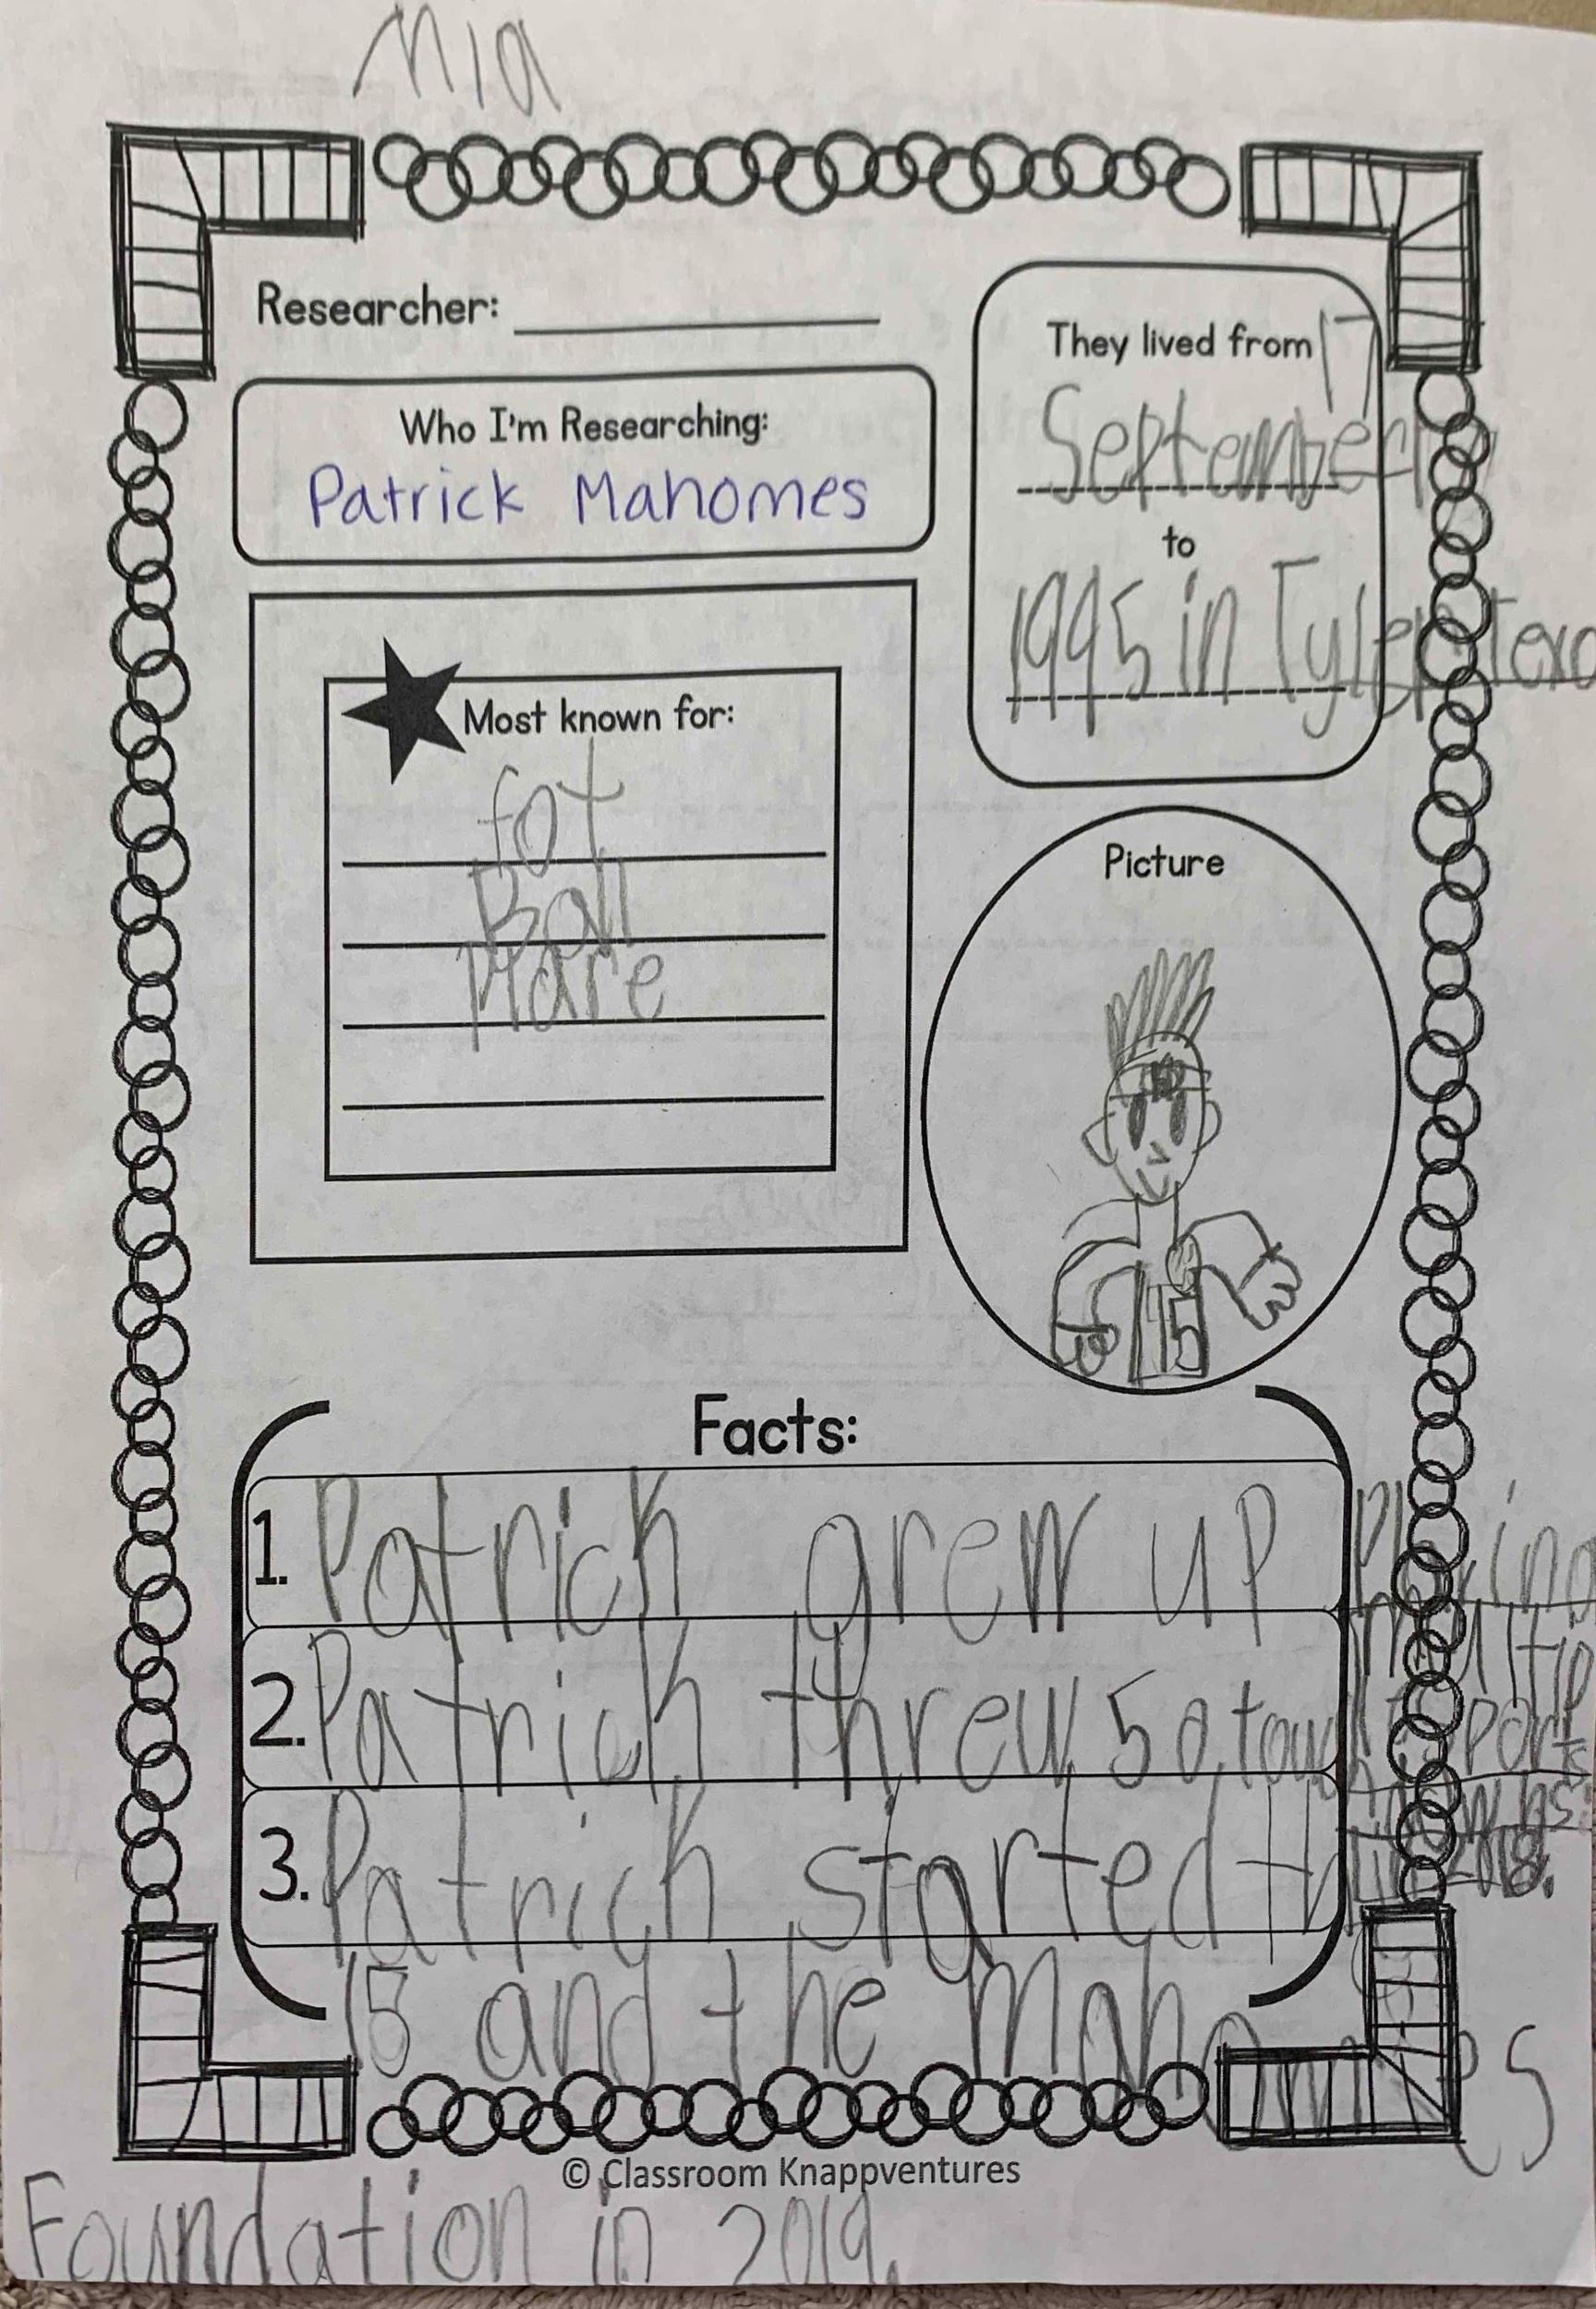 Mia
Researcher:
They lived from 17
September
to
1995 in Tyler, Texa
Who I'm Researching:
Patrick Mahomes
Most known for:
fot
Ball
Plare
Picture
15
Facts:
1. Patrick grew up Playing
multip
sports
2. Patrick threw 50 touch
downs
in 2018.
3. Patrick started the
15 and the Mahomes
Foundation in 2019.
© Classroom Knappventures